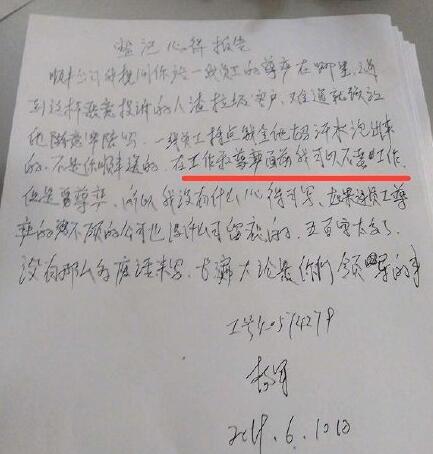 登记心得报告
顺丰公司 我想问你给一线员工的尊严在哪里,遇
到这种恶意投诉的人渣垃圾客户,难道就该让
他随意 一线员工 钱全他妈汗水泡出来
的.不是你顺丰送的.在工作和尊严面前我可以不要工作.
但是要尊严.所以我没有什么心得可写.如果连员工尊
严的 不顾的公司也没什么可留恋的.五百字太多了.
没有那么多废话来写.长篇大论是你们领导的事
工号40574279
杨军
6.10日